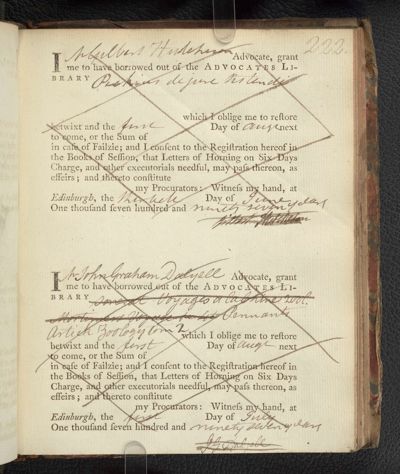 222.
I Mr Gilbert Hutcheson Advocate, grant
me to have borrowed out of the ADVOCATES LI-
BRARY Perkins de jure
which I oblige me to reſtore
betwixt and the first Day of Auge next
to come, or the Sum of
in caſe of Failzie; and I conſent to the Regiſtration hereof in
the Books of Seſſion, that Letters of Horning on Six Days
Charge, and other executorials needful, may paſs thereon, as
effeirs; and thereto conſtitute
my Procurators: Witneſs my hand, at
Edinburgh, the Day of June
One thouſand ſeven hundred and ninety seven years
I Mr John Graham Dalyell Advocate, grant
me to have borrowed out of the ADVOCATES LI-
BRARY Voyages a
Pennants
Artick Zoology tom 2 which I oblige me to reſtore
betwixt and the first Day of Auge next
to come, or the Sum of
in caſe of Failzie; and I conſent to the Regiſtration hereof in
the Books of Seſſion, that Letters of Horning on Six Days
Charge, and other executorials needful, may paſs thereon, as
effeirs; and thereto conſtitute
my Procurators: Witneſs my hand, at
Edinburgh, the first Day of July
One thouſand ſeven hundred and ninety seven years
J G Dalyell